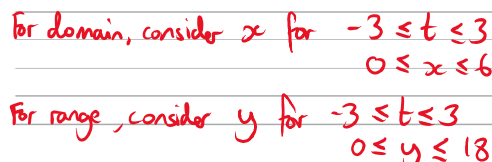 For domain, consider x for -3 ≤ t ≤ 3
0 ≤ x ≤ 6
For range, consider y for -3 ≤ t ≤ 3
0 ≤ y ≤ 18